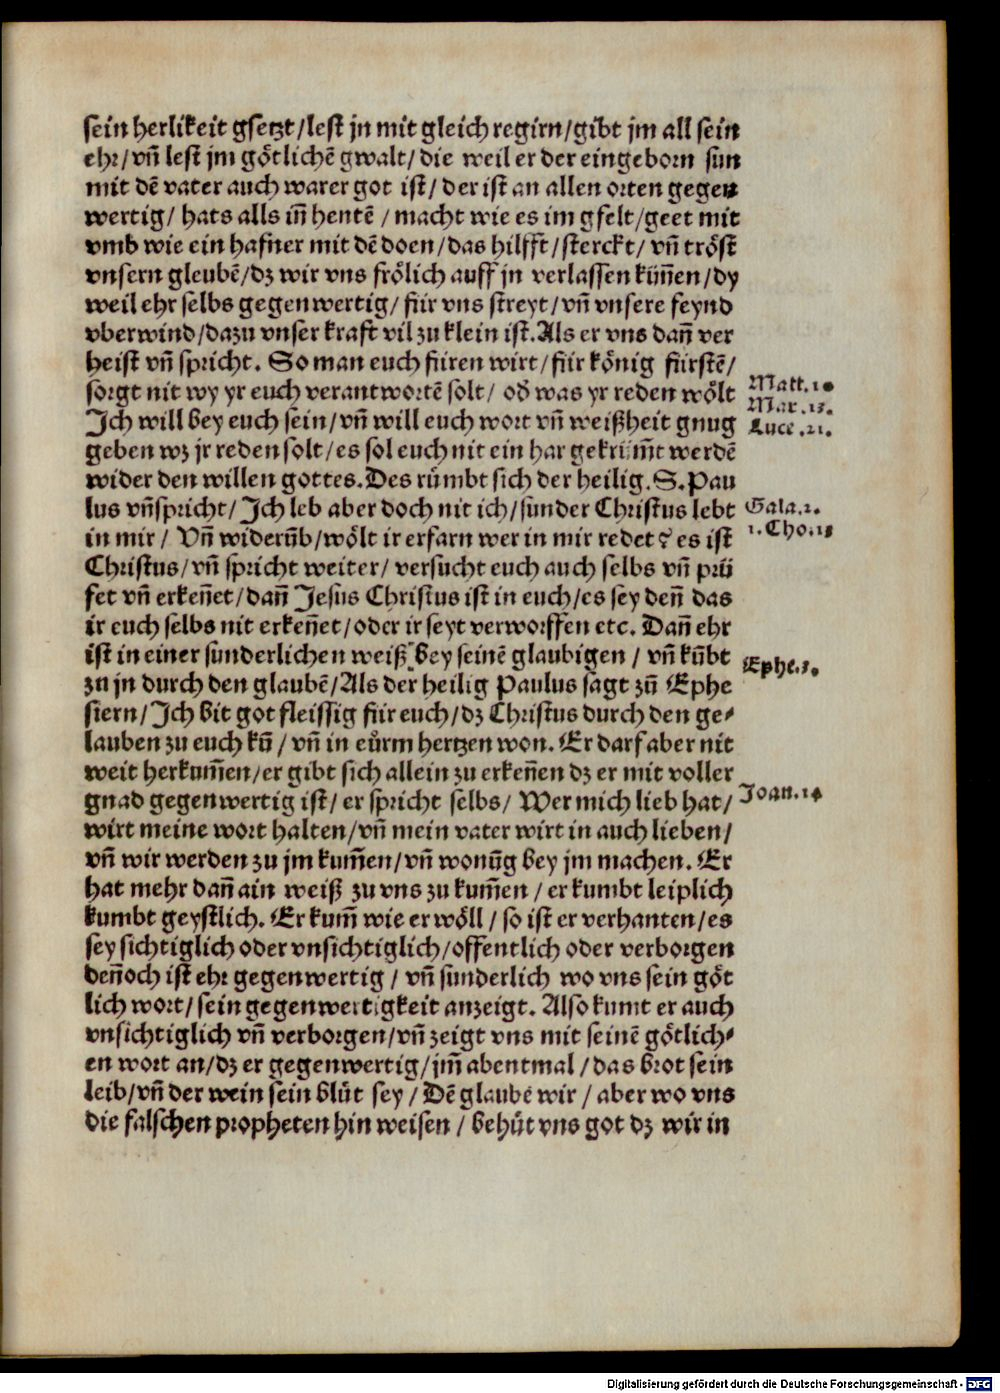 sein herlikeit gsetzt/lest jn mit gleich regirn/gibt jm all sein
ehr/vñ lest jm götlichē gwalt/die weil er der eingeborn sun
mit dē vater auch warer got ist/der ist an allen orten gegen
wertig/ hats alls iñ hentē / macht wie es im gfelt/geet mit
vmb wie ein hafner mit dē doen/das hilfft/sterckt/ vñ tröst
vnsern gleubē/dz wir vns frölich auff jn verlassen küñen/dy
weil ehr selbs gegenwertig/ für vns streyt/vñ vnsere feynd
vberwind/dazu vnser kraft vil zu klein ist.Als er vns dañ ver
heist vñ spricht. So man euch füren wirt/für könig fürstē/
sorgt nit wy yr euch verantwortē solt/ oď was yr reden wölt
Matt.10
Ich will bey euch sein/vñ will euch wort vñ weißheit gnug
Mar.13.
Luce.21.
geben wz jr reden solt/es sol euch nit ein har gekrüm̄t werdē
wider den willen gottes.Des rümbt sich der heilig.S.Pau
lus vñspricht/Ich leb aber doch nit ich/sunder Christus lebt
Gala.2.
in mir/ Vñ widerūb/wölt ir erfarn wer in mir redet? es ist
Christus/vñ spricht weiter/ versucht euch auch selbs vñ prü
fet vñ erkeñet/dañ Jesus Christus ist in euch/es sey deñ das
ir euch selbs nit erkeñet/oder ir seyt verworffen etc. Dañ ehr
ist in einer sunderlichen weiß bey seinē glaubigen / vñ kūbt
Ephe.3.
zu jn durch den glaubē/Als der heilig Paulus sagt zū Ephe
siern/Ich bit got fleissig für euch/dz Christus durch den ge-
lauben zu euch kū / vñ in eürm hertzen won. Er darf aber nit
weit herkum̄en/er gibt sich allein zu erkeñen dz er mit voller
gnad gegenwertig ist/er spricht selbs/ Wer mich lieb hat/
Joan.14
wirt meine wort halten/vñ mein vater wirt in auch lieben/
vñ wir werden zu jm kum̄en/vñ wonūg bey jm machen. Er
hat mehr dañ ain weiß zu vns zu kum̄en / er kumbt leiplich
kumbt geystlich. Er kum̄ wie er wöll / so ist er verhanten/es
sey sichtiglich oder vnsichtiglich/offentlich oder verborgen
deñoch ist ehr gegenwertig / vñ sunderlich wo vns sein göt
lich wort/sein gegenwertigkeit anzeigt. Also kumt er auch
vnsichtiglich vñ verborgen/vñ zeigt vns mit seinē götlich-
en wort an/dz er gegenwertig/jm̄ abentmal/das brot sein
leib/vñ der wein sein blůt sey / Dē glaubē wir / aber wo vns
die falschen propheten hin weisen / behüt vns got dz wir in
Digitalisierung gefördert durch die Deutsche Forschungsgemeinschaft - DFG